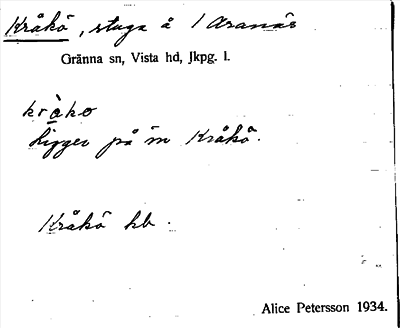 Kråkö, stuga å 1 Aranäs
Gränna sn, Vista hd, Jkpg. l.
kråkə
Ligger på ön Kråkö.
Kråkö hb.
Alice Petersson 1934.